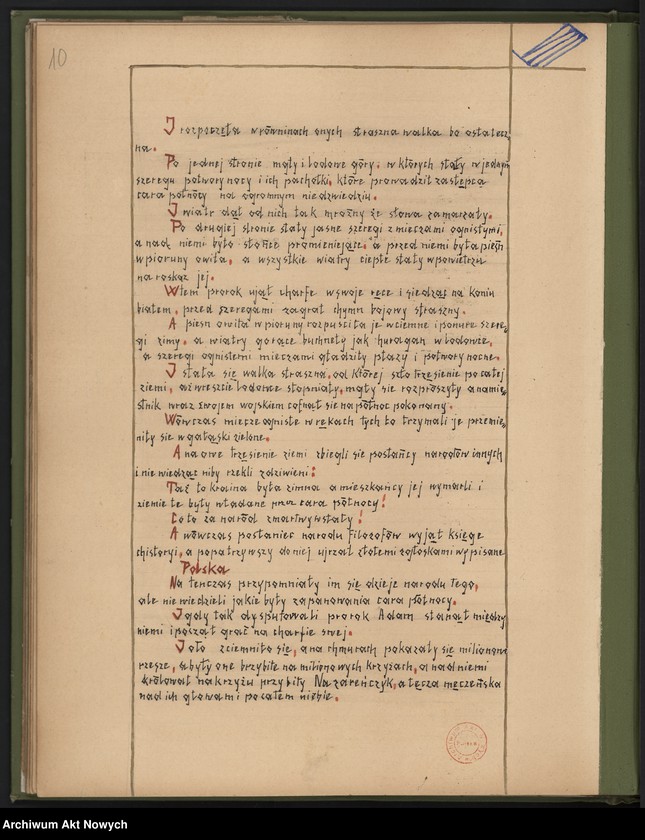 10
I rozpoczęła w równinach onych straszna walka bo ostatecz,
na.
Po jednej stronie mgły i lodowe góry. w których stały w jednym
szeregu potwory nocy i ich pachołki, które prowadził zastępca
cara północy na ogromnym niedźwiedziu.
I wiatr dął od nich tak mroźny że słowa zamarzały.
Po drugiej stronie stały jasne szeregi z mieczami ognistymi,
a nad niemi było słońce promieniejące, a przed niemi była pieśń
w pioruny owita, a wszystkie wiatry ciepłe stały w powietrzu
na rozkaz jej.
Wtem prorok ujął charfe w swoje ręce i siedząc na koniu
białem, przed szeregami zagrał chymn bojowy straszny.
A pieśń owita w pioruny rozpuściła je w ciemne i ponure szere,
gi zimy. a wiatry gorące buchnęły jak huragan w lodowce,
a szeregi ognistemi mieczami gładziły płazy i potwory nocne.
I stała się walka straszna, od której szło trzęsienie po całej
ziemi, aż wreszcie lodowce stopniały, mgły się rozproszyły a namie,
stnik wraz z swojem wojskiem cofnął się na północ pokonany.
Wówczas miecze ogniste w rękach tych co trzymali je przemie,
niły się w gałąski zielone.
A na owe trzęsienie ziemi zbiegli się posłańcy narodów innych
i nie wiedząc niby rzekli zdziwieni:
Taż to kraina była zimna a mieszkańcy jej wymarli i
ziemie te były władane prza cara północy!
Co to za naród zmartwywstały!
A wówczas posłaniec narodu filozofów wyjął księge
chistoryi, a popatrzywszy do niej ujrzał złotemi zgłoskami wypisane
Polska
Na tenczas przypomniały im się dzieje narodu tego,
ale nie wiedzieli jakie były za panowania cara północy.
I gdy tak dysputowali prorok Adam stanął między
niemi i począł grać na charfie swej.
I oto zciemniło się, a na chmurach pokazały się milionow
rzesze, a były one brzybite na milionowych krzyżach, a nad niemi
królował na krzyżu przybity Nazareńczyk, a tęcza męczeńska
nad ich głowami po całem niebie.
Archiwum Akt Nowych